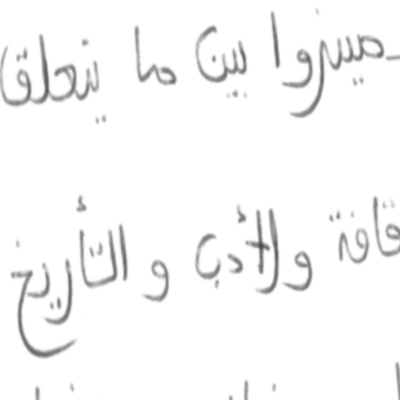 ميزوا بين ما يتعلق
قافة والأدب و التأريخ